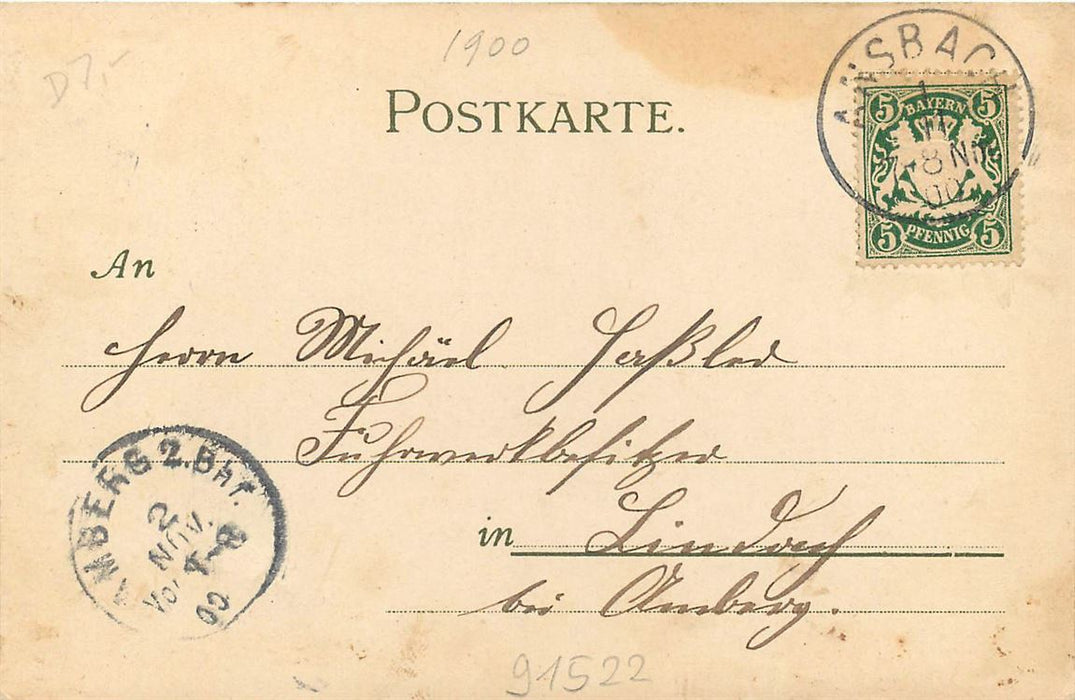 1900
D 7,-
POSTKARTE.
ANSBACH
1
7-8 NM
00
5 BAYERN 5
5 PFENNIG 5
An
Herrn Michael
Fuhrwerkbesitzer
in Lindach
bei Amberg.
AMBERG 2. Bhf.
2
NOV.
7-8
00
91522